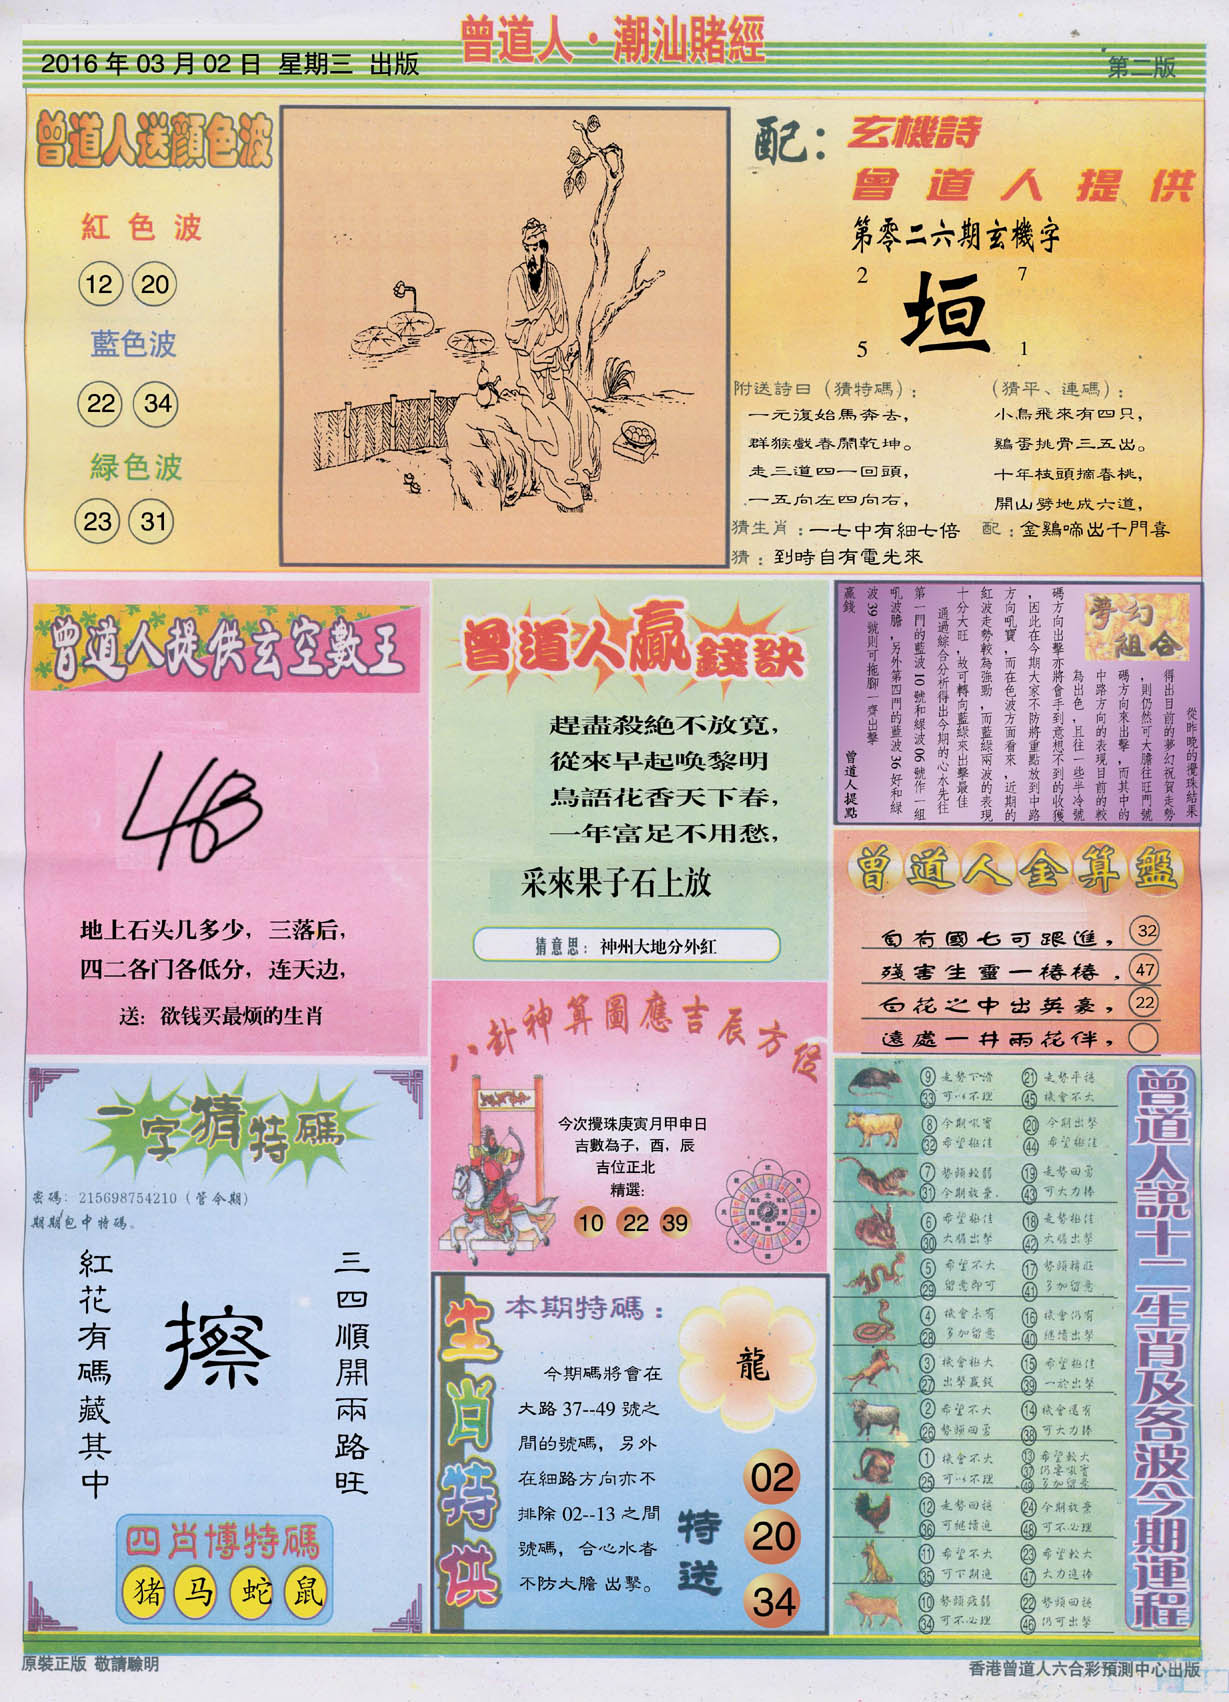 曾道人·潮汕賭經
2016 年 03 月 02 日 星期三 出版
第二版
曾道人送顔色波
紅色波
12 20
藍色波
22 34
緑色波
23 31
配：玄機詩
曾道人提供
第零二六期玄機字
2 7
垣
5 1
附送詩曰（猜特碼）：
一元復始馬奔去，
群猴戲春鬧乾坤。
走三道四一回頭，
一五向左四向右，
（猜平、連碼）：
小鳥飛來有四只，
鷄蛋挑骨三五出。
十年枝頭摘春桃，
開山劈地成六道，
猜生肖：一七中有細七倍
配：金鷄啼出千門喜
猜：到時自有電光來
曾道人提供玄空數王
地上石头几多少，三落后，
四二各门各低分，连天边，
送：欲钱买最烦的生肖
曾道人贏錢訣
趕盡殺絶不放寬，
從來早起喚黎明
鳥語花香天下春，
一年富足不用愁，
采來果子石上放
猜意思：神州大地分外紅
夢幻
組合
從昨晚的攪珠結果
得出目前的夢幻祝賀走勢
，則仍然可大膽往旺門號
碼方向來出擊，而其中的
中路方向的表現目前的較
為出色，且往一些半冷號
碼方向出擊亦將會手到意想不到的收獲
，因此在今期大家不防將重點放到中路
方向吼寶，而在色波方面看來，近期的
紅波走勢較為強勁，而藍綠兩波的表現
十分大旺，故可轉向藍綠來出擊最佳
通過綜合分析得出今期的心水先往
第一門的藍波 10 號和綠波 06 號作一組
吼波膽，另外第四門的藍波 36 好和綠
波 39 號則可拖腳一齊出擊
贏錢
曾道人提點
曾道人金算盤
自有國七可跟進， 32
殘害生靈一樁樁． 47
白花之中出英豪， 22
遠處一井兩花伴，
八卦神算圖應吉辰方位
今次攪珠庚寅月甲申日
吉數為子，酉，辰
吉位正北
精選：
10 22 39
一字猜特碼
密碼：215698754210（管今期）
期期包中特碼。
三四順開兩路旺
擦
紅花有碼藏其中
四肖博特碼
猪 马 蛇 鼠
生肖特供
本期特碼：
龍
今期碼將會在
大路 37--49 號之
間的號碼，另外
在細路方向亦不
排除 02--13 之間
號碼，合心水者
不防大膽 出擊。
特送
02
20
34
曾道人説十二生肖及各波今期運程
9 走勢下滑 21 走勢平穩
33 可以不理 45 機會不大
8 今期吼寶 20 今期出擊
32 希望極佳 44 希望極佳
7 勢頭較弱 19 走勢回勇
31 今期放棄． 43 可大力捧
6 希望極佳 18 走勢極佳
30 大膽出擊 42 大膽出擊
5 希望不大 17 勢頭轉旺
29 留意即可 41 多加留意
4 機會未有 16 機會仍有
28 多加留意 40 繼續出擊
3 機會極大 15 希望極佳
27 出擊贏錢 39 一於出擊
2 希望不大 14 機會還有
26 勢頭回勇 38 可大力捧
1 機會不大 13 希望較大
25 可以不理 37 仍要吼寶
49 多加留意
12 走勢回穩 24 今期放棄
36 可繼續進 48 可不必理
11 希望不大 23 希望較大
35 可下期進 47 大力進捧
10 勢頭疲弱 22 勢頭回穩
34 可不必理 46 仍可出擊
原裝正版 敬請驗明
香港曾道人六合彩預測中心出版